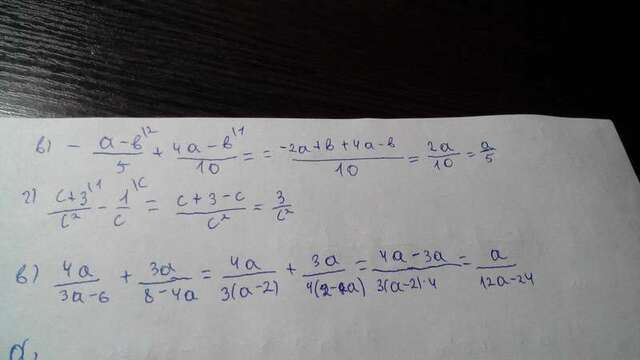 в) - (a-в^\2)/5 + (4a-в^\1)/10 = = (-2a+в+4a-в)/10 = 2a/10 = a/5
г) (c+3^\1)/c² - 1^\c/c = (c+3-c)/c² = 3/c²
в) 4a/(3a-6) + 3a/(8-4a) = 4a/(3(a-2)) + 3a/(4(2-a)) = (4a-3a)/(3(a-2)·4) = a/(12a-24)